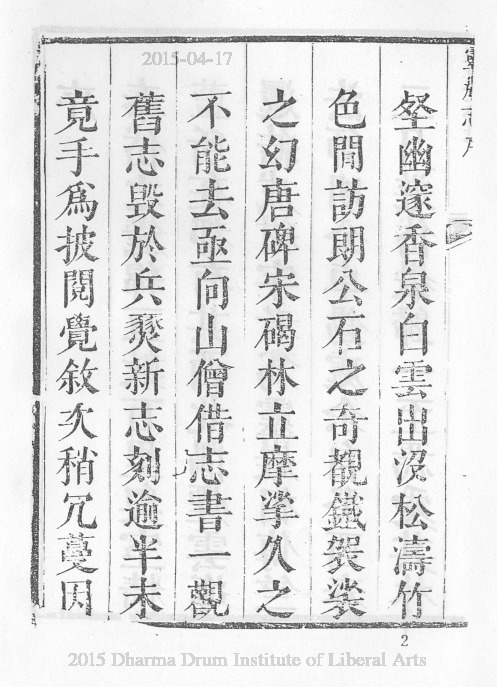 壑幽邃香泉白雲出沒松濤竹
色間訪朗公石之奇觀鐵袈裟
之幻唐碑宋碣林立摩挲久之
不能去亟向山僧借志書一觀
舊志毀於兵燹新志刻逾半未
竟手爲披閱覺敘次稍冗蔓因
2015-04-17
2
2015 Dharma Drum Institute of Liberal Arts